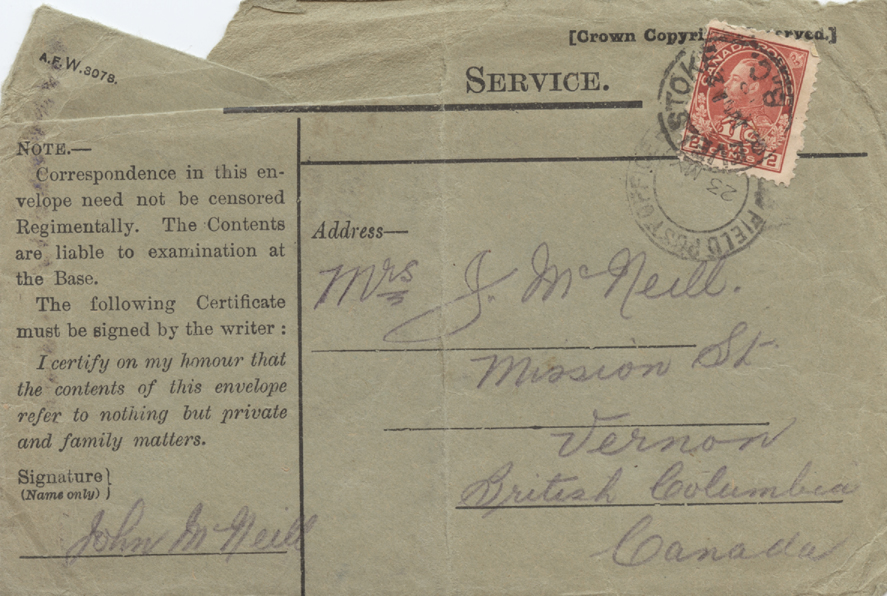 A.F.W.3078.
[Crown Copyri
erved.]
SERVICE.
NOTE.—
Correspondence in this en-
velope need not be censored
Regimentally. The Contents
are liable to examination at
the Base.
The following Certificate
must be signed by the writer :
I certify on my honour that
the contents of this envelope
refer to nothing but private
and family matters.
Signature}
(Name only)
John McNeill
CANADA
FIELD POST OFFICE
23
Address—
Mrs J. McNeill.
Mission St
Vernon
British Columbia
Canada